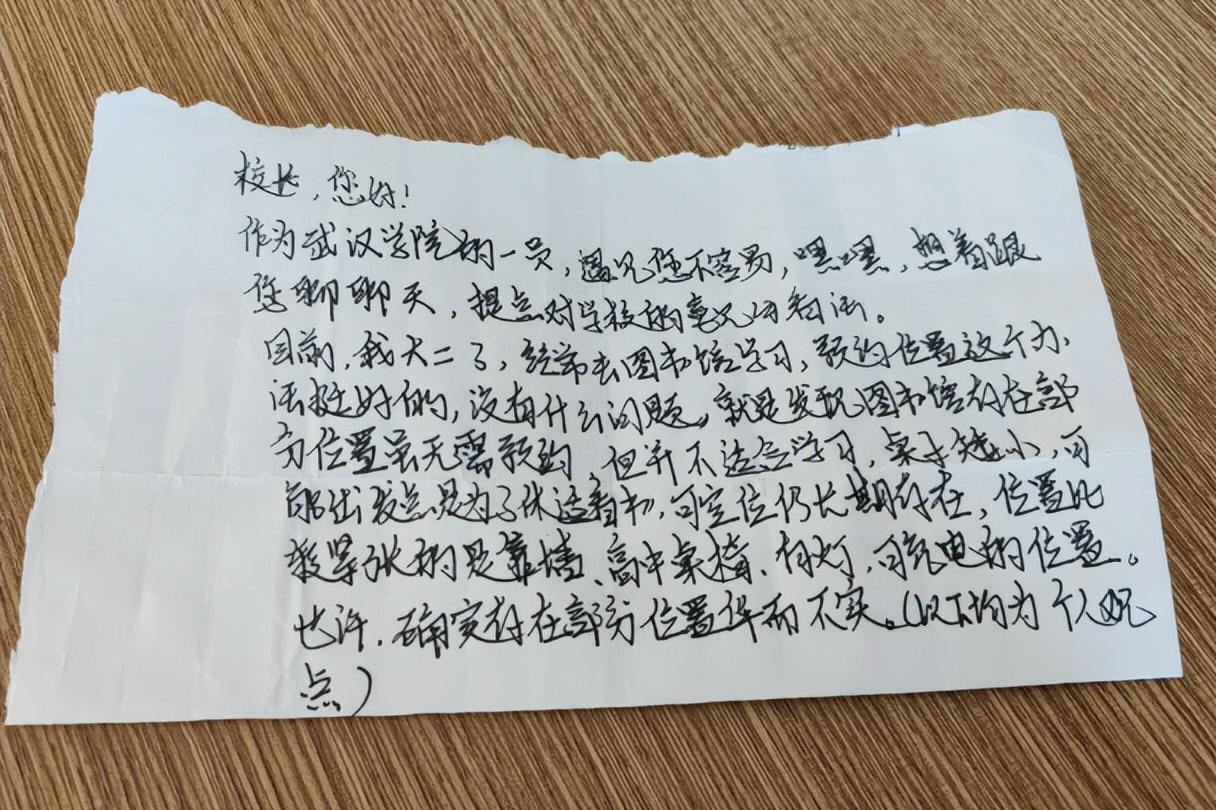 校长，您好！
作为武汉学院的一员，遇见您不容易，嘿嘿，想着跟
您聊聊天，提点对学校的意见和看法。
目前，我大二了，经常去图书馆学习，预约位置这个办
法挺好的，没有什么问题。就是发现图书馆存在部
分位置虽无需预约，但并不适合学习，桌子矮小，可
能出发点是为了休适看书，可空位仍长期存在，位置比
较紧张的是靠墙、高中桌椅、有灯，可充电的位置。
也许，确实存在部分位置华而不实。（以下均为个人观
点）